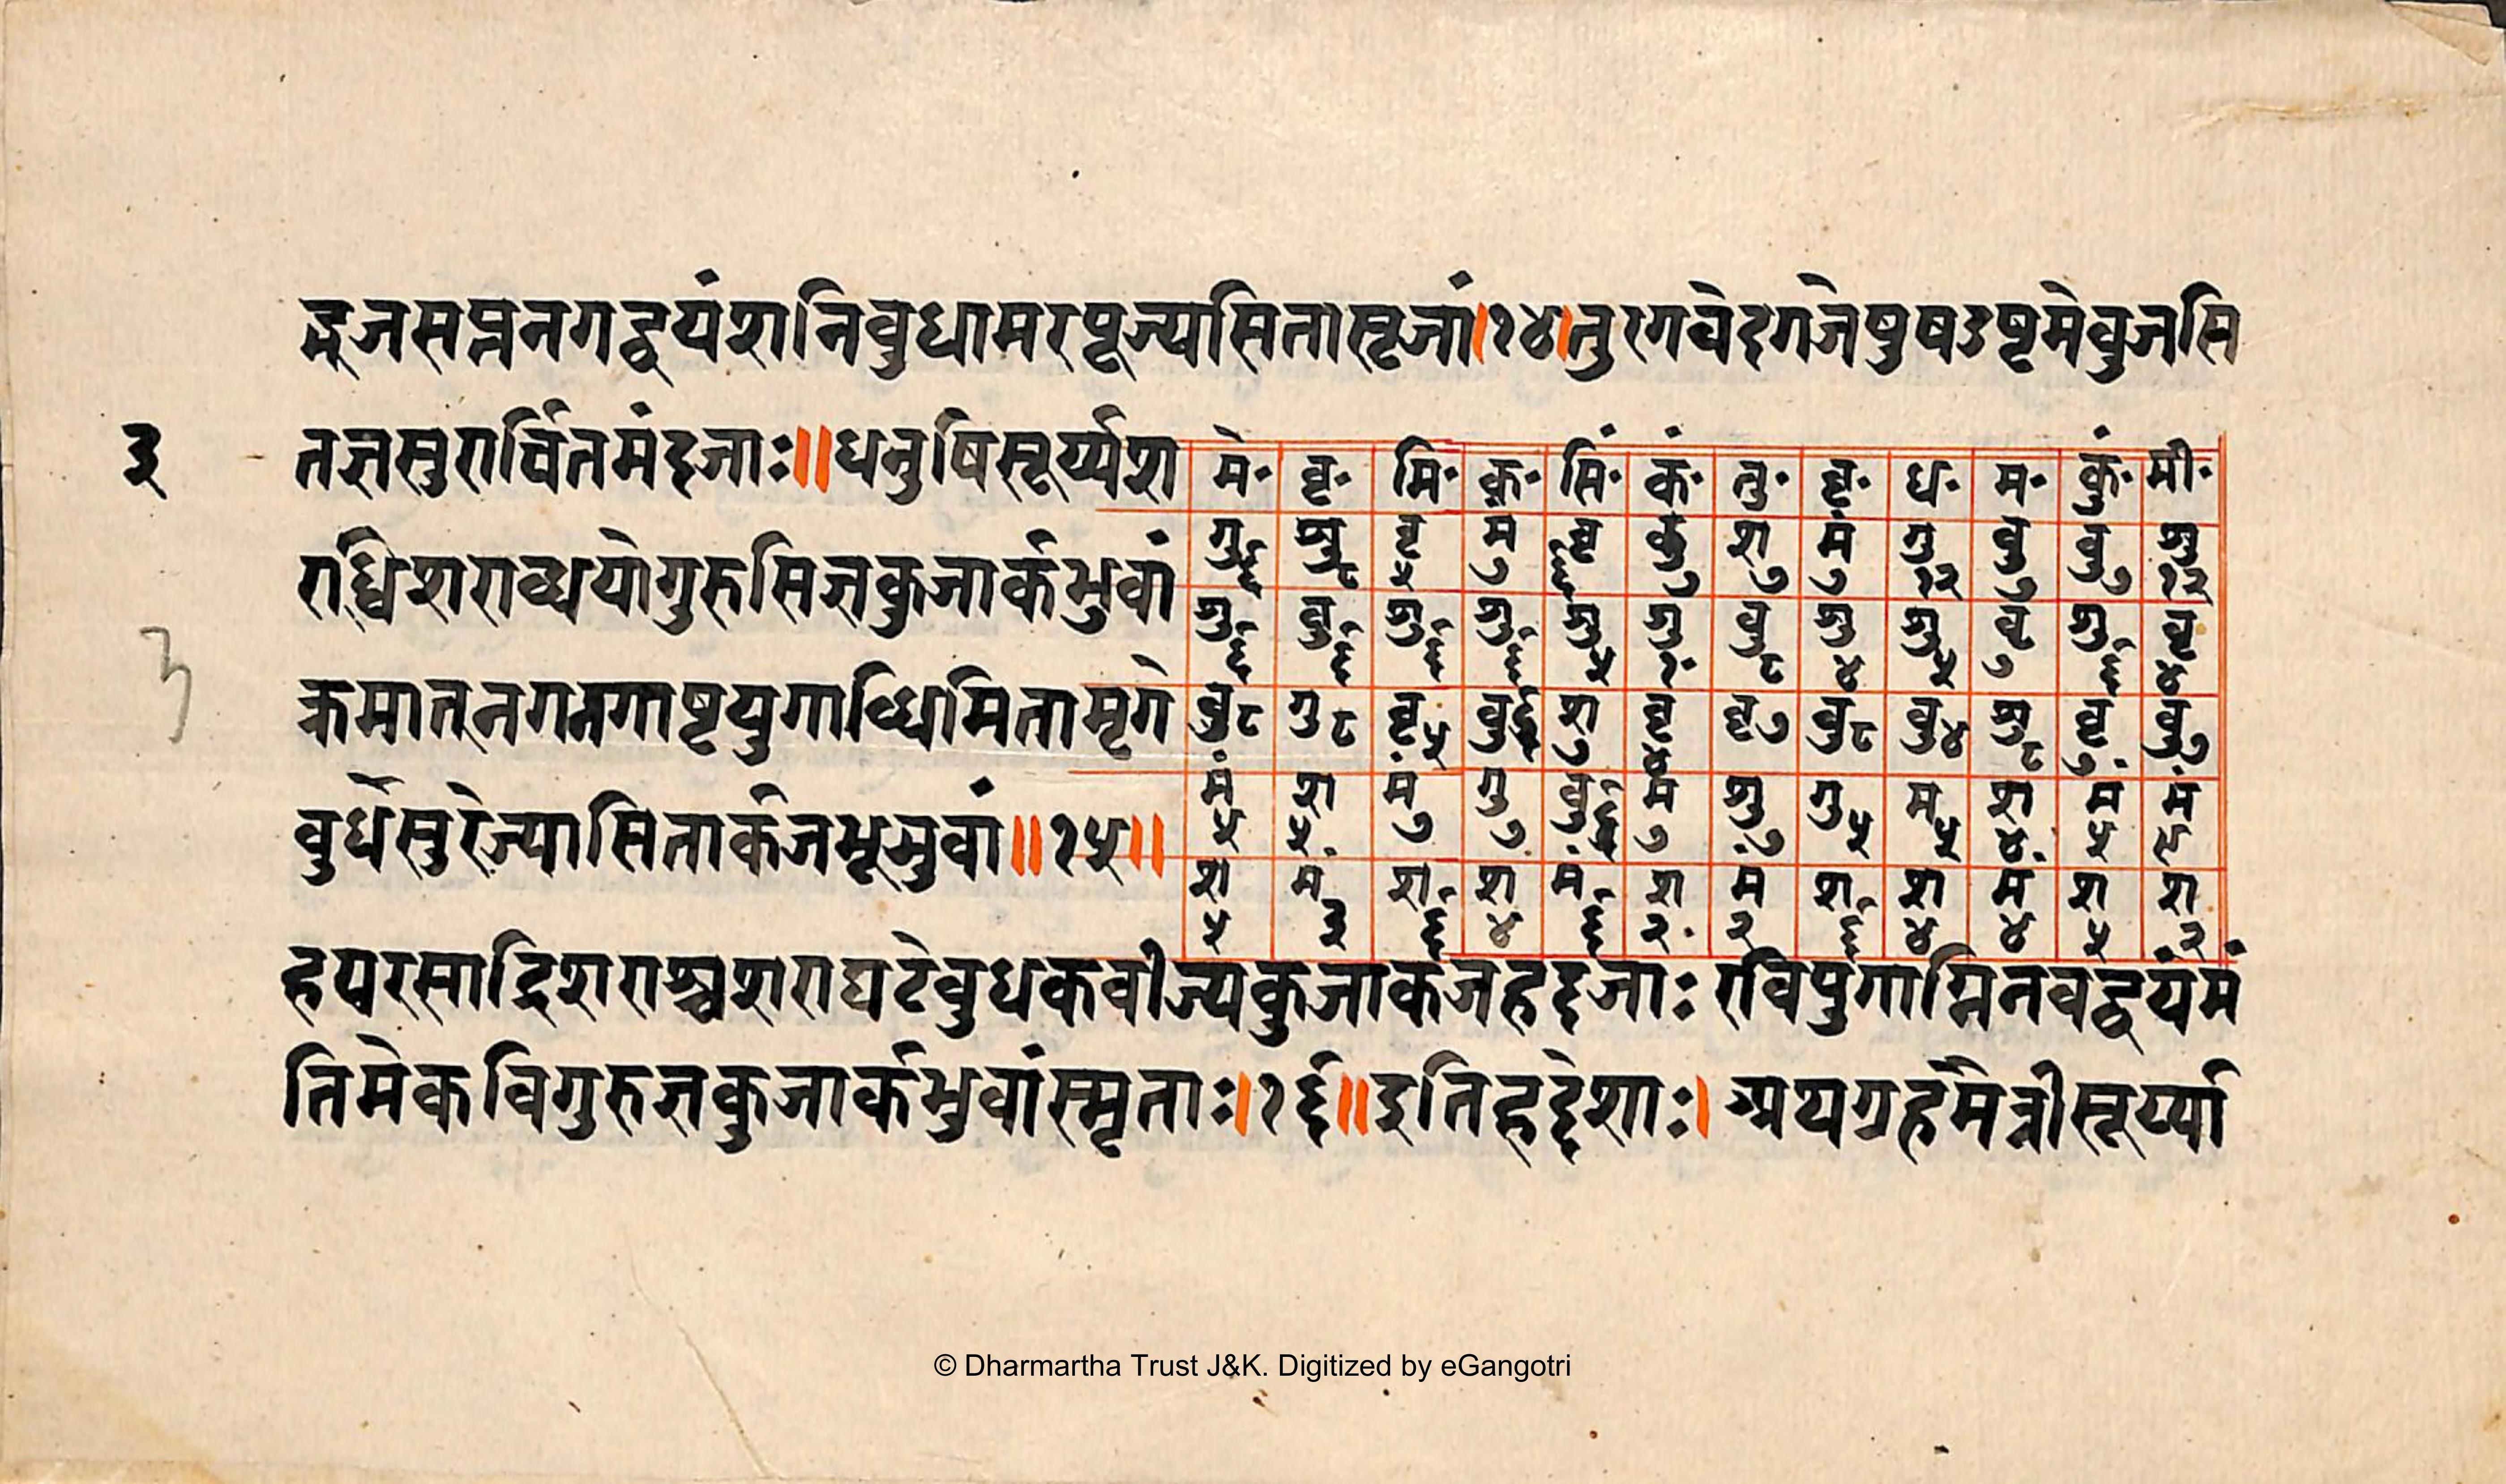 द्भजसप्तनगद्वयंशनिबुधामरपूज्यसितासृजां।१४।तुरगवेदगजेषुषडष्टमेबुजसि
३ तज्ञसुरार्चितमंदजाः॥धनुषिसूर्य्यश
राब्धिशराब्धयोगुरुसितज्ञकुजार्कभुवां
3 क्रमात्नगनगाष्टयुगाब्धिमितामृगे
बुधेसुरेज्यासितार्कजभूभुवां॥१५॥
मे॰ वृ॰ मि॰ क॰ सिं॰ कं॰ तु॰ वृ॰ ध॰ म॰ कुं॰ मी॰
गु६ शु८ वृ५ मं७ वृ६ बु७ श७ मं७ गु१२ बु७ बु७ शु१२
शु६ बु६ शु६ शु६ शु५ शु१॰ बु८ शु४ शु५ वृ७ शु६ वृ४
बु८ गु८ वृ५ बु६ श७ वृ४ वृ७ बु८ बु४ शु८ वृ७ बु७
मं५ श५ मं७ गु७ बु६ मं७ शु७ गु५ म५ श४ मं५ मं९
श५ मं३ श६ श४ मं६ श२ मं२ श६ श४ मं४ श५ श२
हयरसाद्रिशराश्चशराघटेबुधकवीज्यकुजार्कजहद्दजाः रवियुगाग्निनवद्वयंमं
तिमेकविगुरुज्ञकुजार्कभुवांस्मृताः।१६॥इतिहद्देशाः। अथग्रहमैत्रीसूर्य्या
© Dharmartha Trust J&K. Digitized by eGangotri